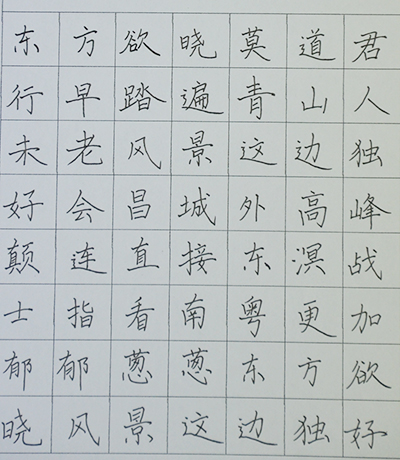 东方欲晓莫道君
行早踏遍青山人
未老风景这边独
好会昌城外高峰
颠连直接东溟战
士指看南粤更加
郁郁葱葱东方欲
晓风景这边独好